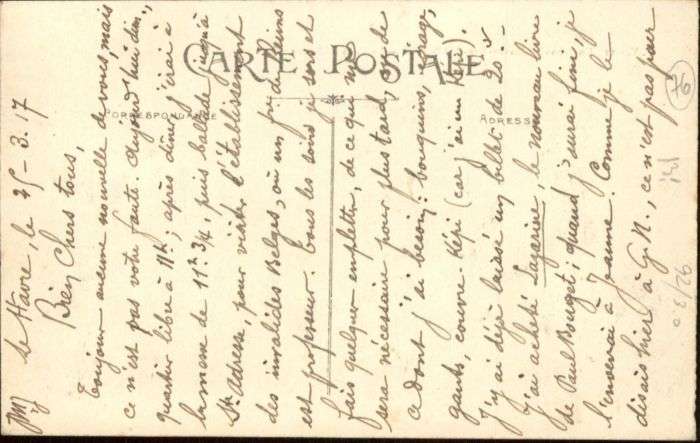 CARTE POSTALE
CORRESPONDANCE
ADRESSE
Le Havre, le 25-3.17
Bien Chers tous,
Toujours aucune nouvelle de vous, mais
ce n'est pas votre faute. Aujourd'hui dim.,
quartier libre à 11h; après dîner j'irai à
la messe de 11h 3/4, puis ballade jusqu'à
Ste Adresse, pour visiter l'établissement
des invalides Belges, où un fr. de Reims
est professeur. Tous les soirs je sors et
fais quelques emplettes, de ce qui me
sera nécessaire pour plus tard, ou de
ce dont j'ai besoin: bouquins, cirage,
gants, couvre-Képi (car j'ai un Képi).
J'y ai déjà laissé un billet de 20 -
J'ai acheté Lazarine, le nouveau livre
de Paul Bourget; quand j'aurai fini, je
l'enverrai à Jeanne. Comme je le
disais hier à G.N., ce n'est pas pour
76
141